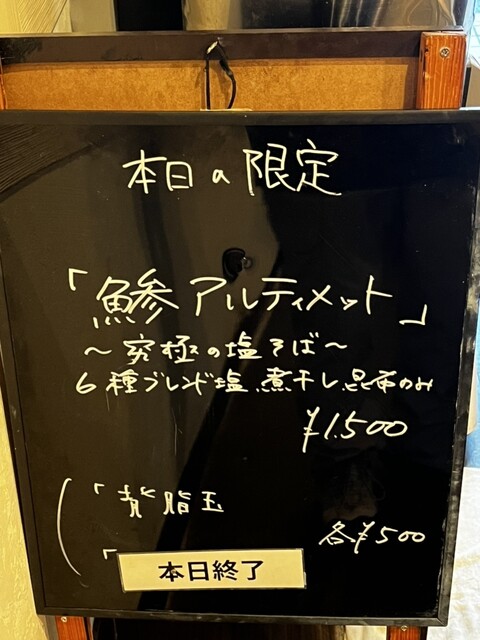 本日の限定
「鯵アルティメット」
～究極の塩そば～
6種ブレンド塩、煮干し昆布のみ
¥1.500
「背脂玉
各¥500
「
本日終了